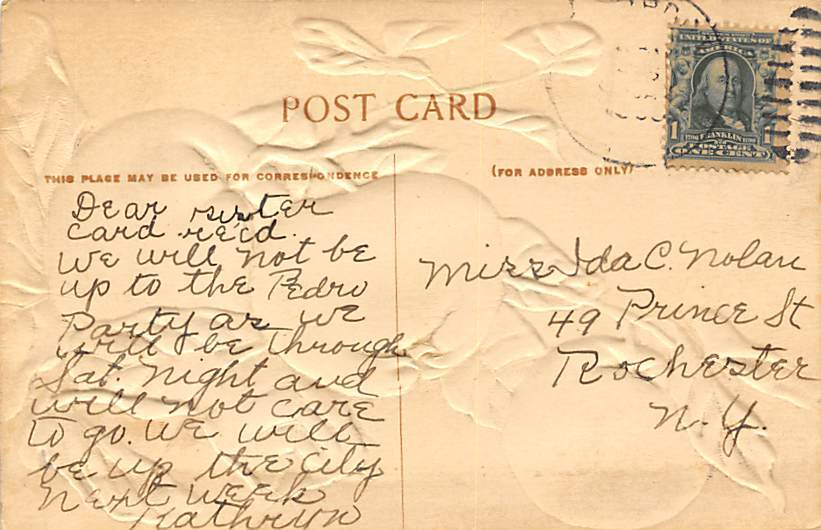 POST CARD
THIS PLACE MAY BE USED FOR CORRESPONDENCE
(FOR ADDRESS ONLY)
UNITED STATES OF
AMERICA
1 FRANKLIN 1
POSTAGE
ONE CENT
Dear sister
card rec'd.
We will not be
up to the Pedro
Party as we
will be through
Sat. night and
will not care
to go. We will
be up the city
next week
Kathryn
Miss Ida C. Nolan
49 Prince St
Rochester
N.Y.